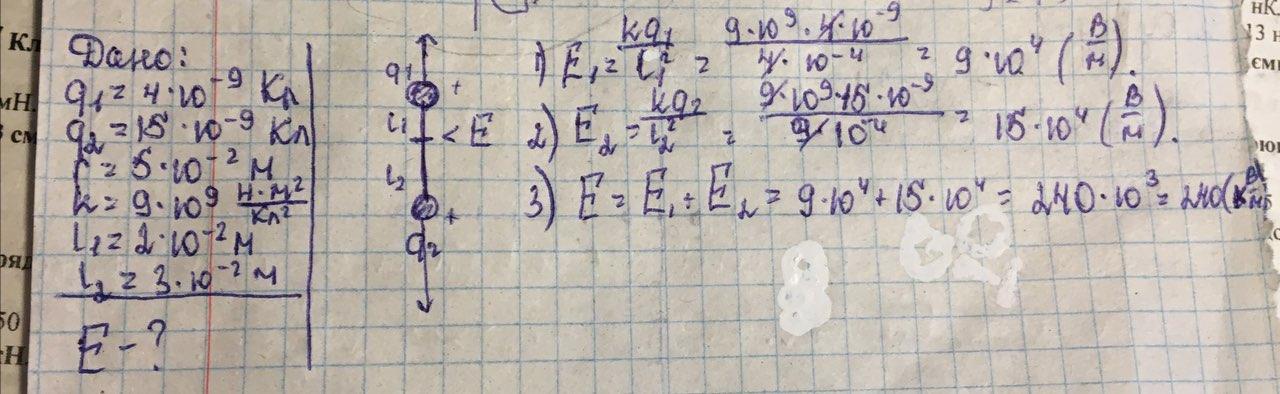 Дано:
q₁ = 4·10⁻⁹ Кл
q₂ = 15·10⁻⁹ Кл
r = 5·10⁻² м
k = 9·10⁹ Н·м²/Кл²
l₁ = 2·10⁻² м
l₂ = 3·10⁻² м
E – ?
q₁ +
l₁ < E
l₂
+
q₂
1) E₁ = kq₁/l₁² = 9·10⁹·4·10⁻⁹/4·10⁻⁴ = 9·10⁴ (В/м).
2) E₂ = kq₂/l₂² = 9·10⁹·15·10⁻⁹/9·10⁻⁴ = 15·10⁴ (В/м).
3) E = E₁ + E₂ = 9·10⁴ + 15·10⁴ = 240·10³ = 240 (кВ/м
Кл
мН.
см
ряд
50
нК
13 н
ємн